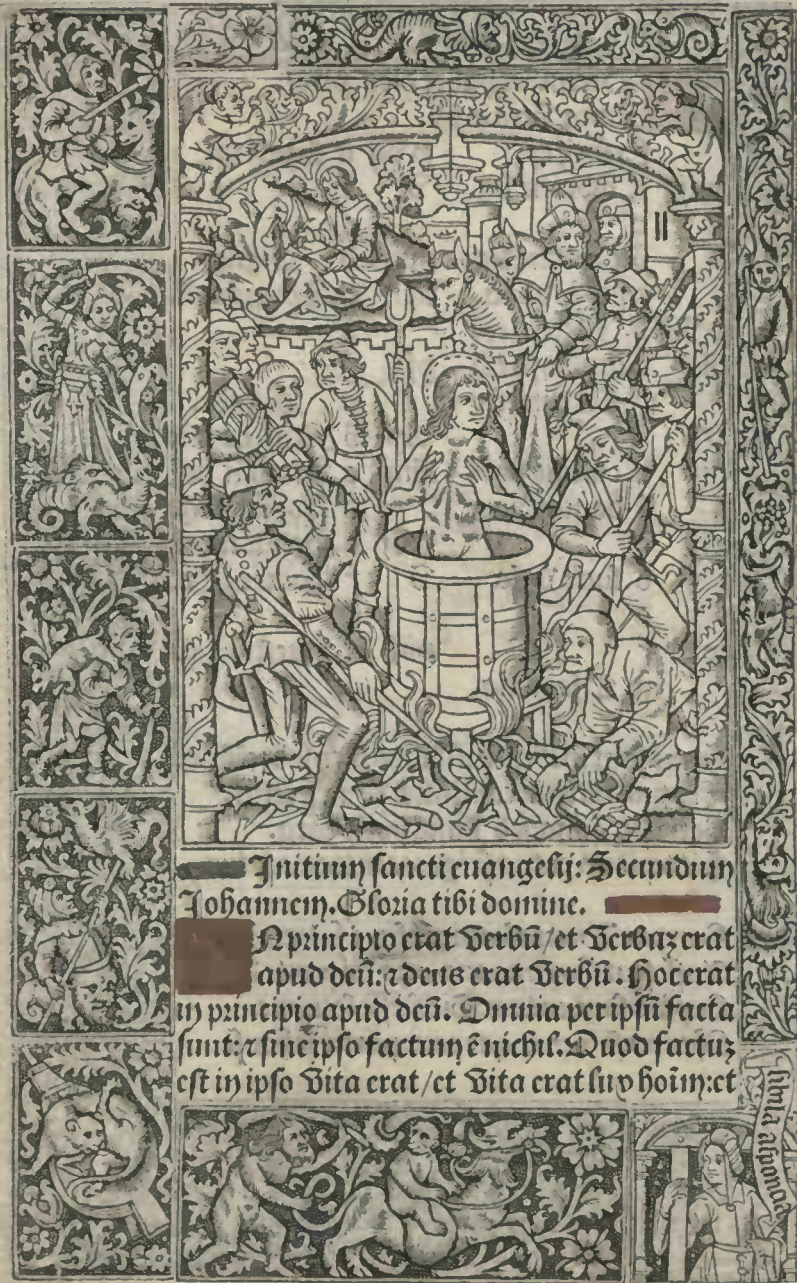 Initium sancti euangelij: Secundum
Johannem. Gloria tibi domine.
N principio erat Verbū/et Verbuꝫ erat
apud deū: ⁊ deus erat Verbū. Hoc erat
in principio apud deū. Omnia per ipsū facta
sunt: ⁊ sine ipso factum ē nichil. Quod factuꝫ
est in ipso Vita erat/et Vita erat lux hoīm: et